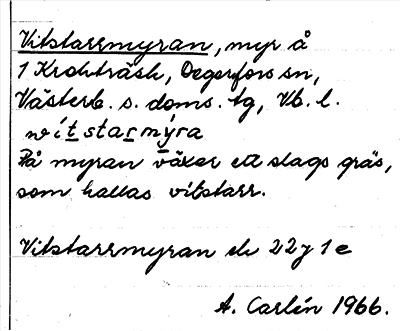 Vitstarrmyran, myr å
1 Krokträsk, Degerfors sn,
Västerb. s. doms. tg, Vb. l.
wítstarmýra
På myran växer ett slags gräs,
som kallas vitstarr.
Vitstarrmyran ek 22 J 1 e
A. Carlén 1966.